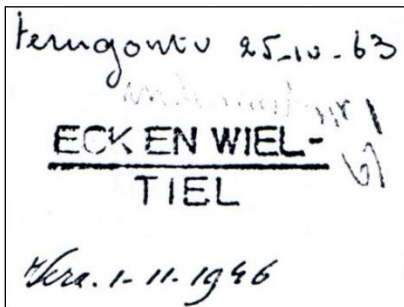 terugontv 25-10-63
ECK EN WIEL-
TIEL
Verz. 1-11-1946